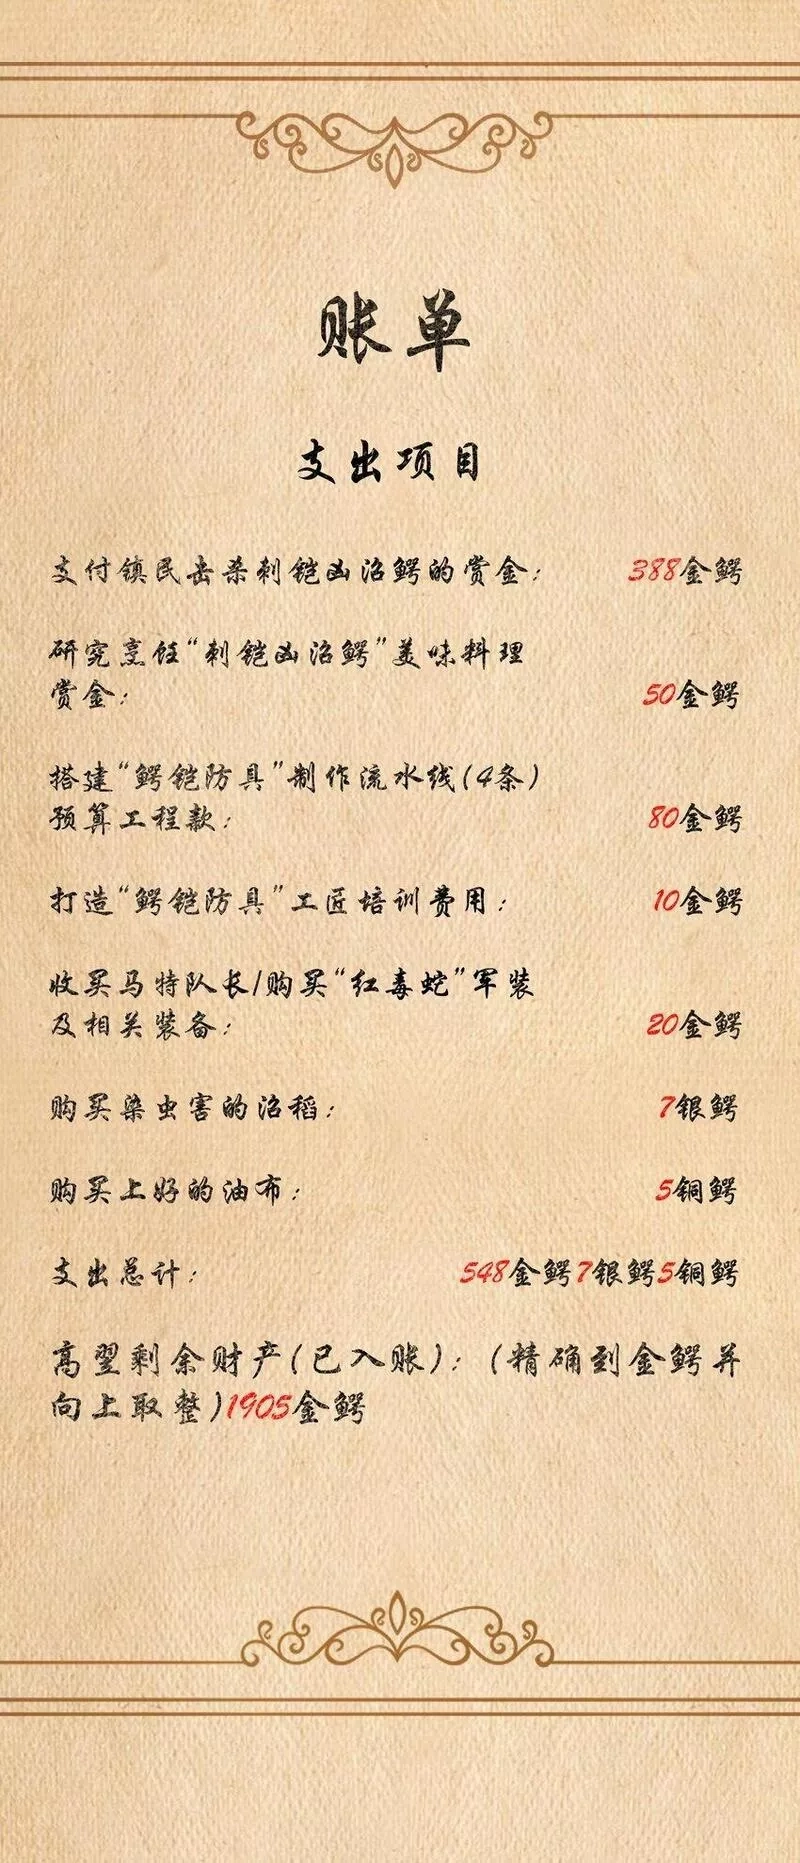 账单
支出项目
支付镇民击杀刺铠凶沼鳄的赏金： 388金鳄
研究烹饪“刺铠凶沼鳄”美味料理
赏金： 50金鳄
搭建“鳄铠防具”制作流水线(4条)
预算工程款： 80金鳄
打造“鳄铠防具”工匠培训费用： 10金鳄
收买马特队长/购买“红毒蛇”军装
及相关装备： 20金鳄
购买染虫害的沼稻： 7银鳄
购买上好的油布： 5铜鳄
支出总计： 548金鳄7银鳄5铜鳄
高翌剩余财产(已入账)：(精确到金鳄并
向上取整)1905金鳄